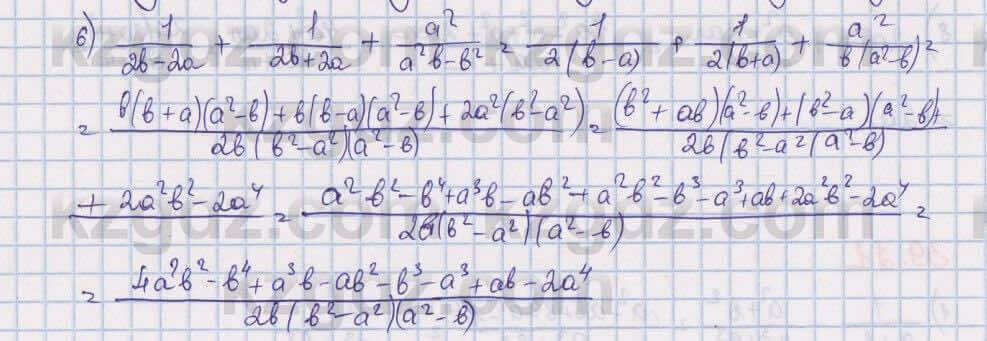 б) 1/(2b-2a) + 1/(2b+2a) + a²/(a²b-b²) = 1/(2(b-a)) + 1/(2(b+a)) + a²/(b(a²-b)) =
= (b(b+a)(a²-b)+b(b-a)(a²-b)+2a²(b²-a²))/(2b(b²-a²)(a²-b)) = ((b²+ab)(a²-b)+(b²-a)(a²-b)+)/(2b(b²-a²(a²-b))
(+2a²b²-2a⁴)/ = (a²b²-b⁴+a³b-ab²+a²b²-b³-a³+ab+2a²b²-2a⁴)/(2b(b²-a²)(a²-b)) =
= (4a²b²-b⁴+a³b-ab²-b³-a³+ab-2a⁴)/(2b(b²-a²)(a²-b))